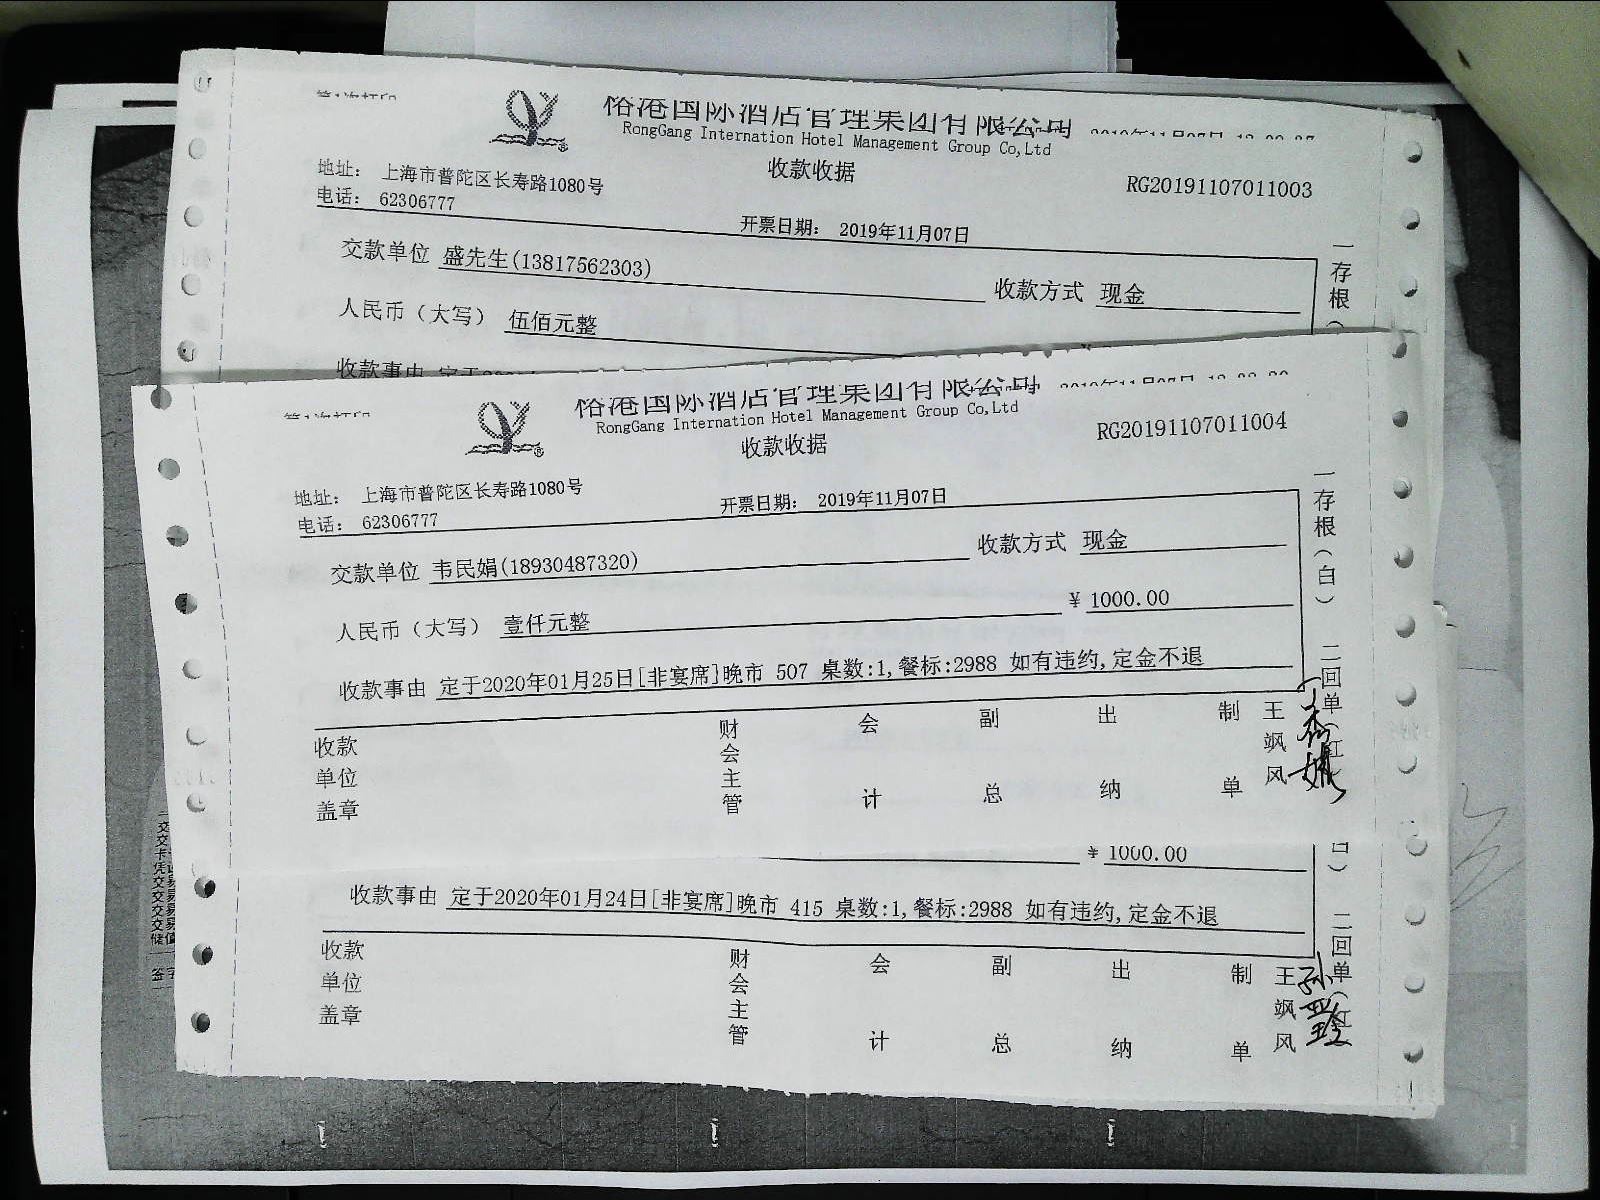 RongGang Internation Hotel Management Group Co,Ltd
收款收据
RG20191107011003
地址： 上海市普陀区长寿路1080号
电话： 62306777
开票日期： 2019年11月07日
交款单位 盛先生(13817562303)
收款方式 现金
人民币（大写） 伍佰元整
一存根（
国际酒店管理集团有限公司
RongGang Internation Hotel Management Group Co,Ltd
收款收据
RG20191107011004
地址： 上海市普陀区长寿路1080号
电话： 62306777
开票日期： 2019年11月07日
交款单位 韦民娟(18930487320)
收款方式 现金
人民币（大写） 壹仟元整
¥ 1000.00
收款事由 定于2020年01月25日[非宴席]晚市 507 桌数:1,餐标:2988 如有违约,定金不退
收款单位盖章 财会主管 会计 副总 出纳 制单 王飒风
一存根（白） 二回单（红
¥ 1000.00
收款事由 定于2020年01月24日[非宴席]晚市 415 桌数:1,餐标:2988 如有违约,定金不退
收款单位盖章 财会主管 会计 副总 出纳 制单 王飒风
白） 二回单（红